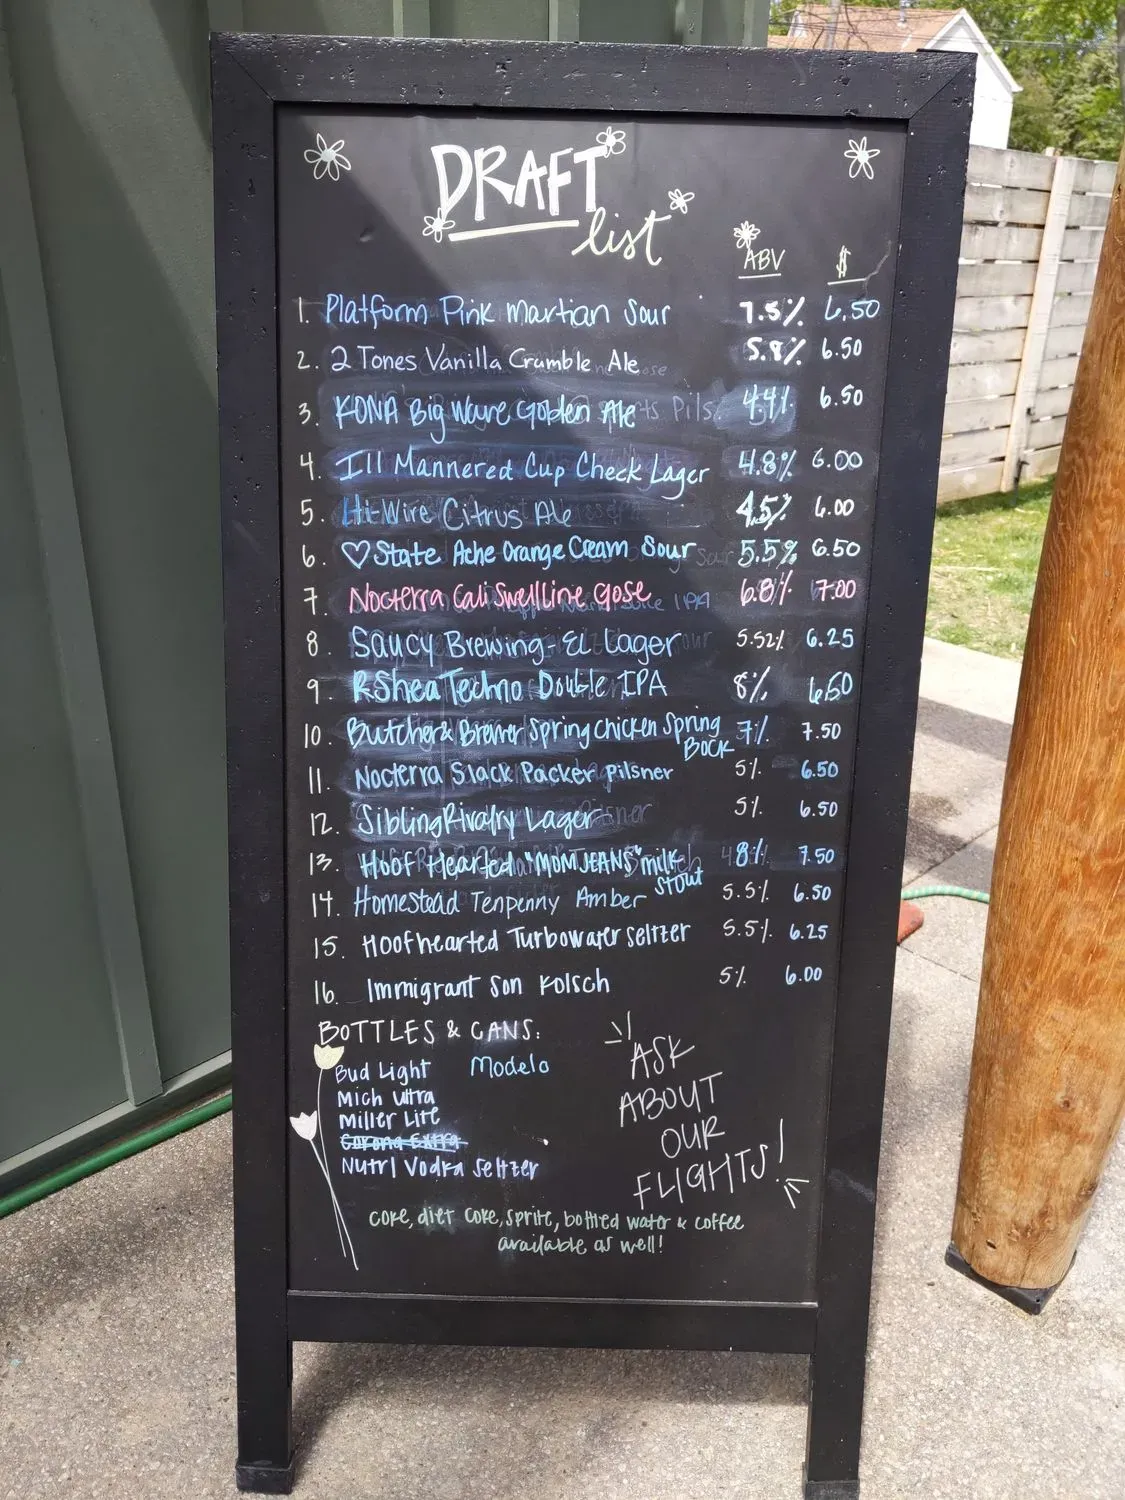 DRAFT
list
ABV $
1. Platform Pink Martian Sour 7.5% 6.50
2. 2 Tones Vanilla Crumble Ale 5.8% 6.50
3. KONA Big Wave Golden Ale 4.4% 6.50
4. Ill Mannered Cup Check Lager 4.8% 6.00
5. Hi-Wire Citrus Ale 4.5% 6.00
6. ♡ State Ache Orange Cream Sour 5.5% 6.50
7. Nocterra Cali Swell Line Gose 6.8% 7.00
8. Saucy Brewing - EL Lager 5.52% 6.25
9. RShea Techno Double IPA 8% 6.50
10. Butcher & Brewer Spring Chicken Spring 7% 7.50
Bock
11. Nocterra Slack Packer Pilsner 5% 6.50
12. Sibling Rivalry Lager 5% 6.50
13. Hoof Hearted "MOM JEANS" milk 8% 7.50
stout
14. Homestead Tenpenny Amber 5.5% 6.50
15. Hoof hearted Turbowater seltzer 5.5% 6.25
16. Immigrant Son Kolsch 5% 6.00
BOTTLES & CANS:
Bud Light Modelo
Mich Ultra
Miller Lite
Corona Extra
Nutrl Vodka Seltzer
ASK
ABOUT
OUR
FLIGHTS!
coke, diet coke, sprite, bottled water & coffee
available as well!